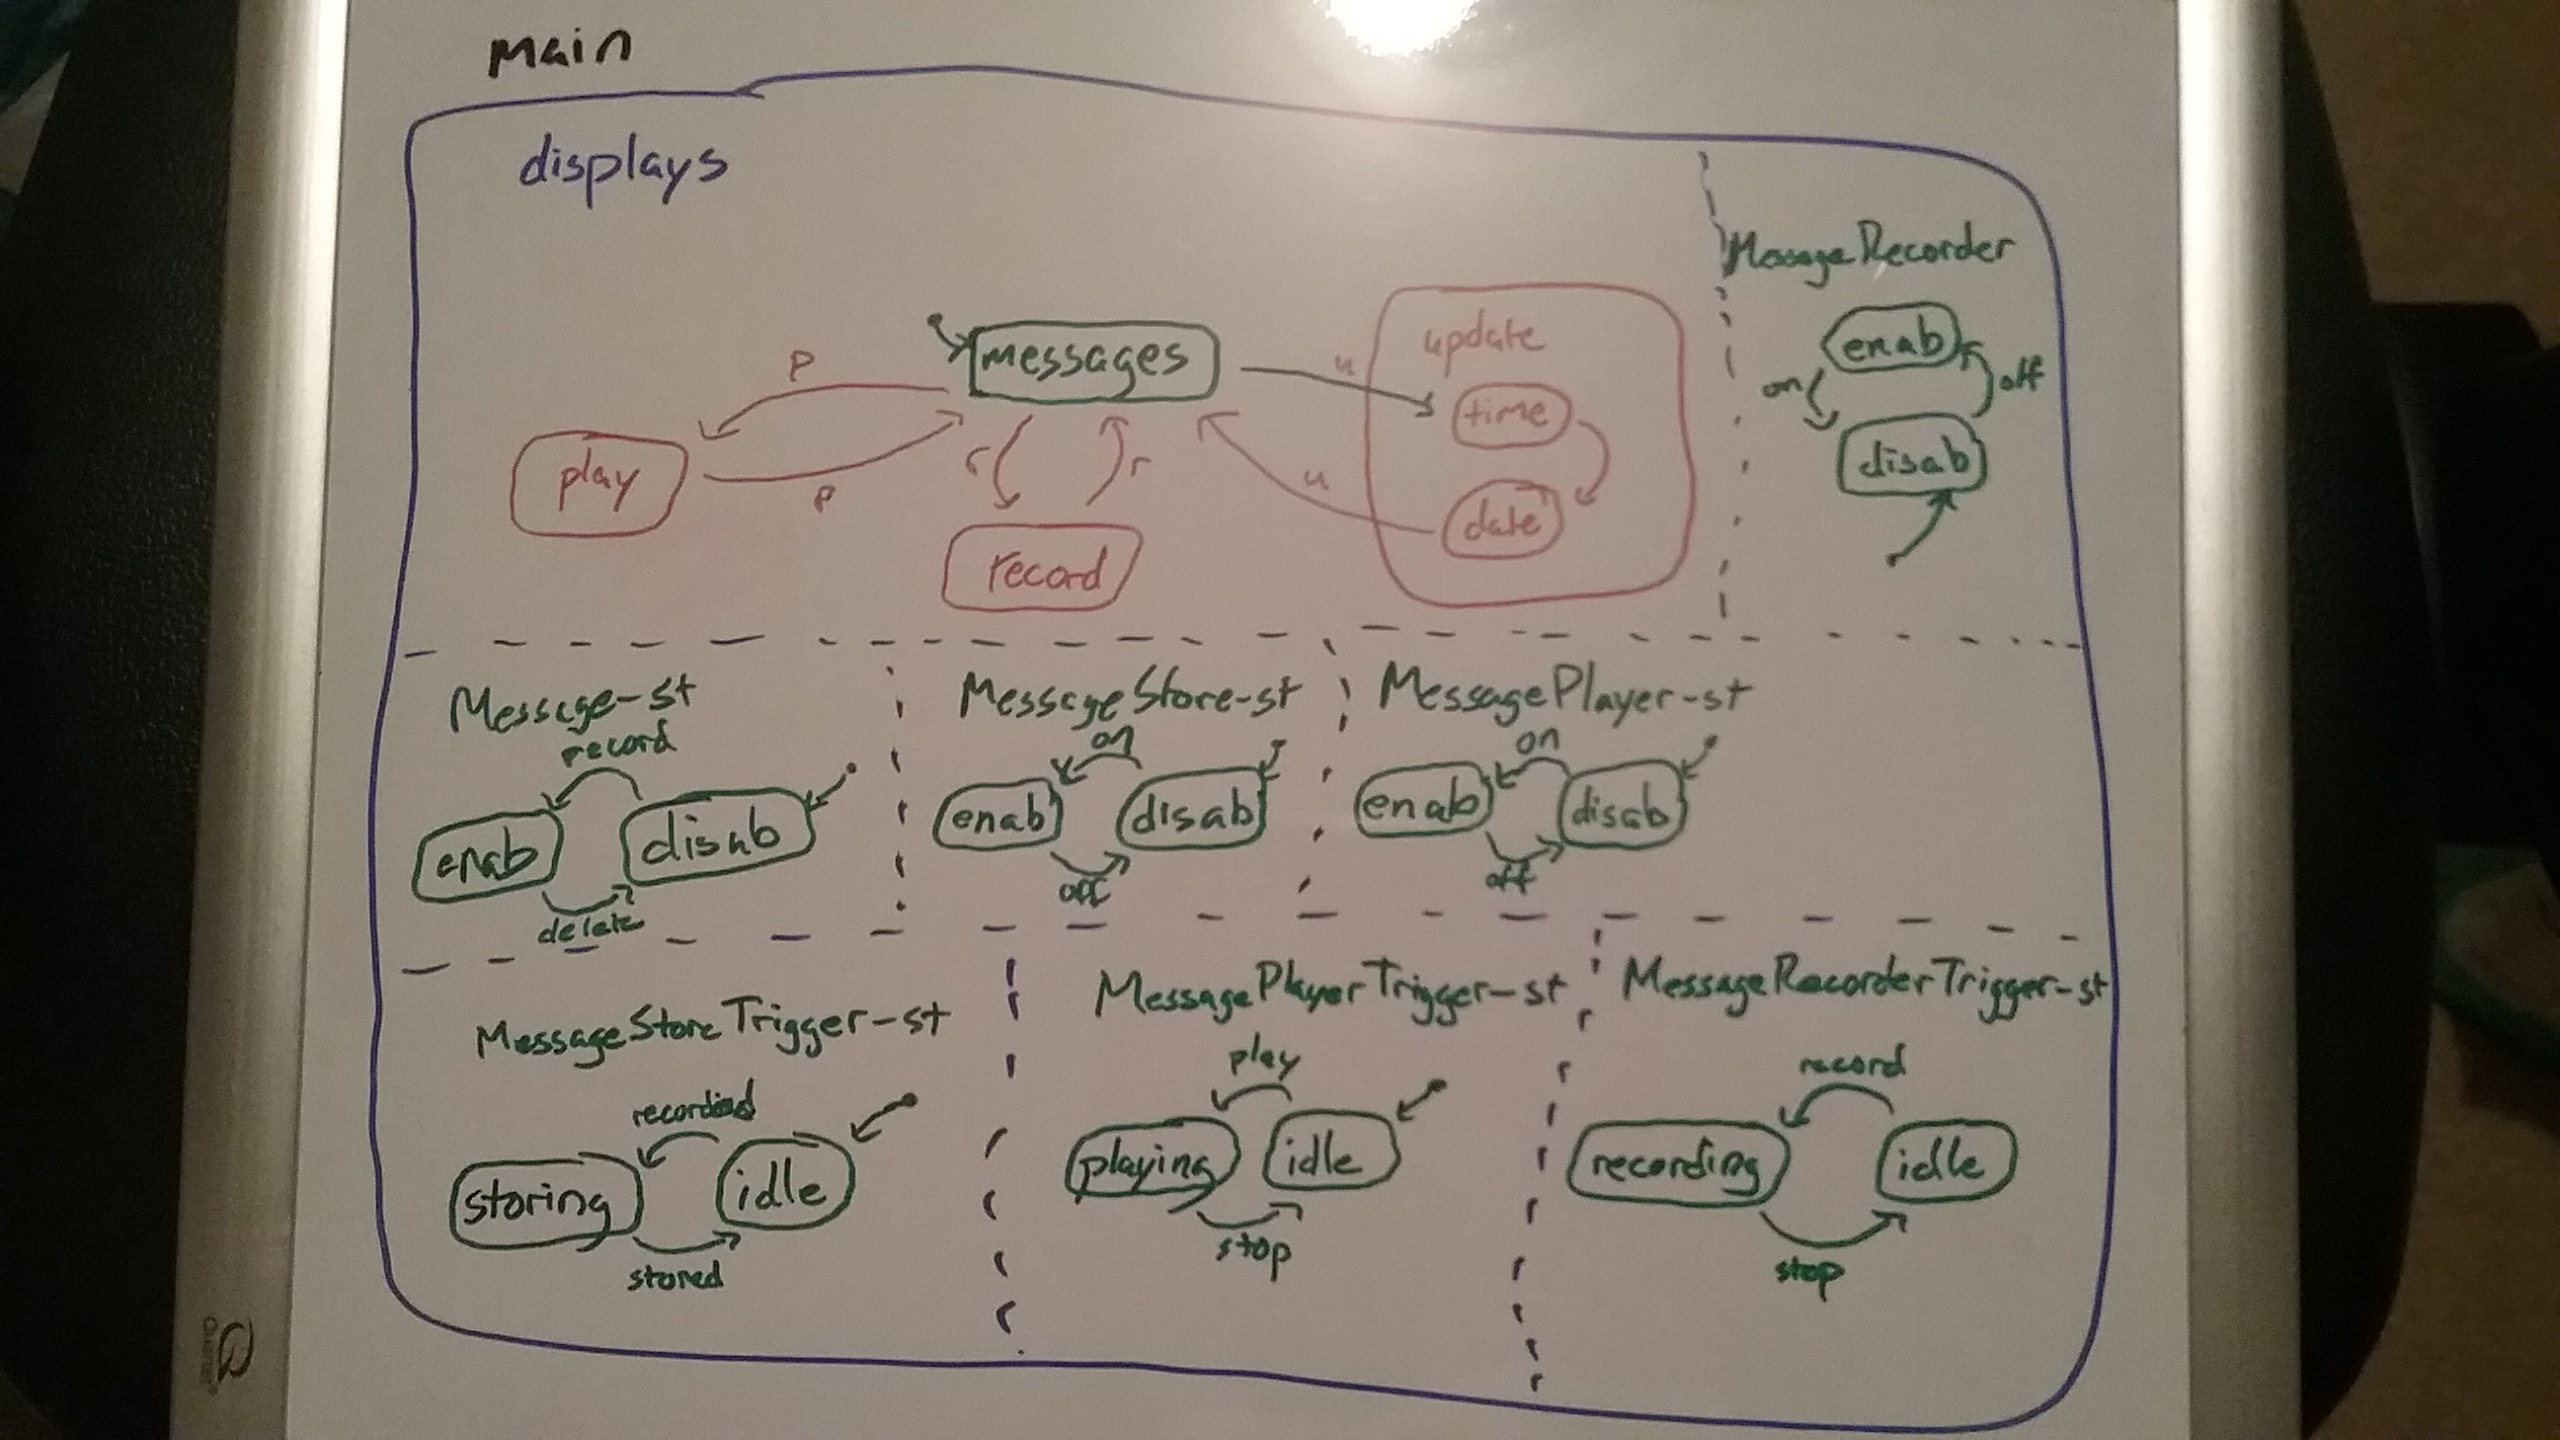 main
displays
Message Recorder
enab
on
off
disab
messages
p
play
p
r
r
record
u
update
time
date
u
Message-st
record
enab
disab
delete
MessageStore-st
on
enab
disab
off
MessagePlayer-st
on
enab
disab
off
MessageStoreTrigger-st
storing
idle
stored
MessagePlayerTrigger-st
play
playing
idle
stop
MessageRecorderTrigger-st
record
recording
idle
stop
Quartet